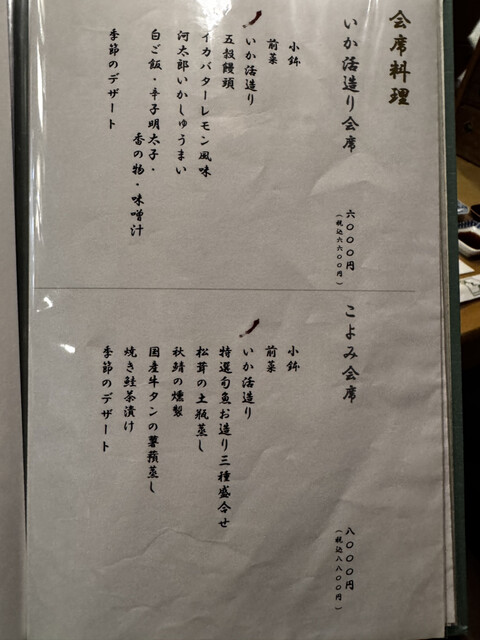 会席料理
いか活造り会席
六〇〇〇円
(税込六六〇〇円)
小鉢
前菜
いか活造り
五穀饅頭
イカバターレモン風味
河太郎いかしゅうまい
白ご飯・辛子明太子・
香の物・味噌汁
季節のデザート
こよみ会席
八〇〇〇円
(税込八八〇〇円)
小鉢
前菜
いか活造り
特選旬魚お造り三種盛合せ
松茸の土瓶蒸し
秋鯖の燻製
国産牛タンの薯蕷蒸し
焼き鮭茶漬け
季節のデザート